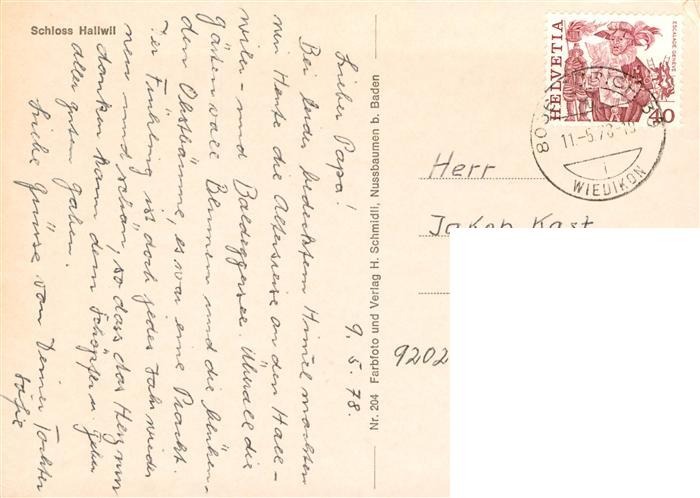 Schloss Hallwil
9. 5. 78.
Lieber Papa!
Bei leider bedecktem Himmel machten
wir Heute die Altersreise an den Hall-
wiler- und Baldeggersee. Überall die
Gärten voll Blumen und die blühen-
den Obstbäume, es war eine Pracht.
Der Frühling ist doch jedes Jahr wieder
neu und schön, so dass das Herz nur
danken kann dem Schöpfer u. Geber
aller guten Gaben.
Liebe Grüsse von Deiner Tochter
Nr. 204 Farbfoto und Verlag H. Schmidli, Nussbaumen b. Baden
HELVETIA
ESCALADE GENÈVE
40
11.-5.78-18
WIEDIKON
Herr
Jakob Kast
9202